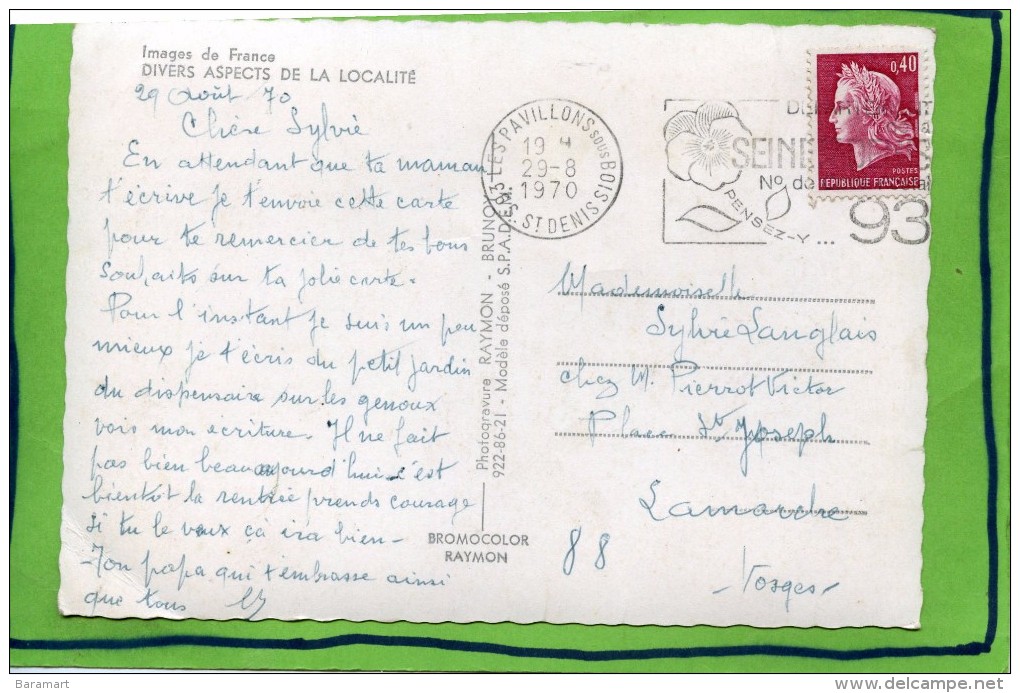 Images de France
DIVERS ASPECTS DE LA LOCALITÉ
29 Août 70
Chère Sylvie
En attendant que ta maman
t'écrive je t'envoie cette carte
pour te remercier de tes bons
souhaits sur ta jolie carte.
Pour l'instant je suis un peu
mieux je t'écris du petit jardin
du dispensaire sur les genoux
vois mon écriture. Il ne fait
pas bien beau aujourd'hui c'est
bientot la rentrée prends courage
si tu le veux ça ira bien -
Ton papa qui t'embrasse ainsi
que tous
Photogravure RAYMON - BRUNOY
922-86-21 - Modèle déposé S.P.A.D.E.M.
BROMOCOLOR
RAYMON
93 LES PAVILLONS SOUS BOIS
19 H
29-8
1970
S. ST DENIS
SEINE
No de
PENSEZ-Y ...
93
0,40
POSTES
REPUBLIQUE FRANÇAISE
Mademoiselle
Sylvie Langlais
chez M. Pierrot Victor
Place St Joseph
Lamarche
88
- Vosges -
Baramart
www.delcampe.net